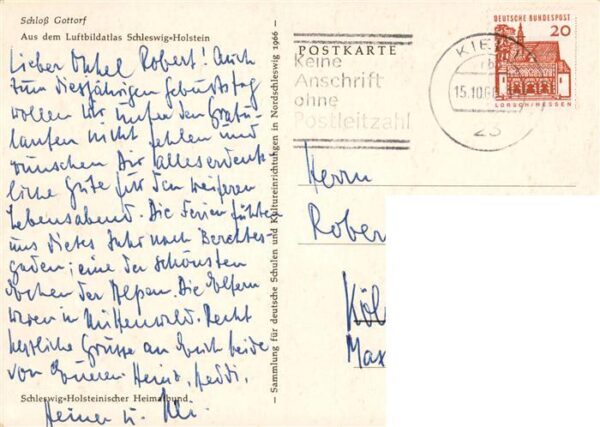 Schloß Gottorf
Aus dem Luftbildatlas Schleswig=Holstein
Lieber Onkel Robert! Auch
zum diesjährigen Geburtstag
wollen wir unter den Gratu-
lanten nicht fehlen und
wünschen Dir alles erdenk-
liche Gute für den weiteren
Lebensabend. Die Ferien führten
uns dieses Jahr nach Berchtes-
gaden; eine der schönsten
der Alpen. Die Eltern
waren in Mittenwald. Recht
herzliche Grüsse an Euch beide
von Heddi,
Schleswig=Holsteinischer Heimatbund
Heiner u.
— Sammlung für deutsche Schulen und Kultureinrichtungen in Nordschleswig 1966 —
POSTKARTE
Keine
Anschrift
ohne
Postleitzahl
KIEL
15.10.66
23
DEUTSCHE BUNDESPOST
20
LORSCH/HESSEN
Herrn
Rober
Köl
Max